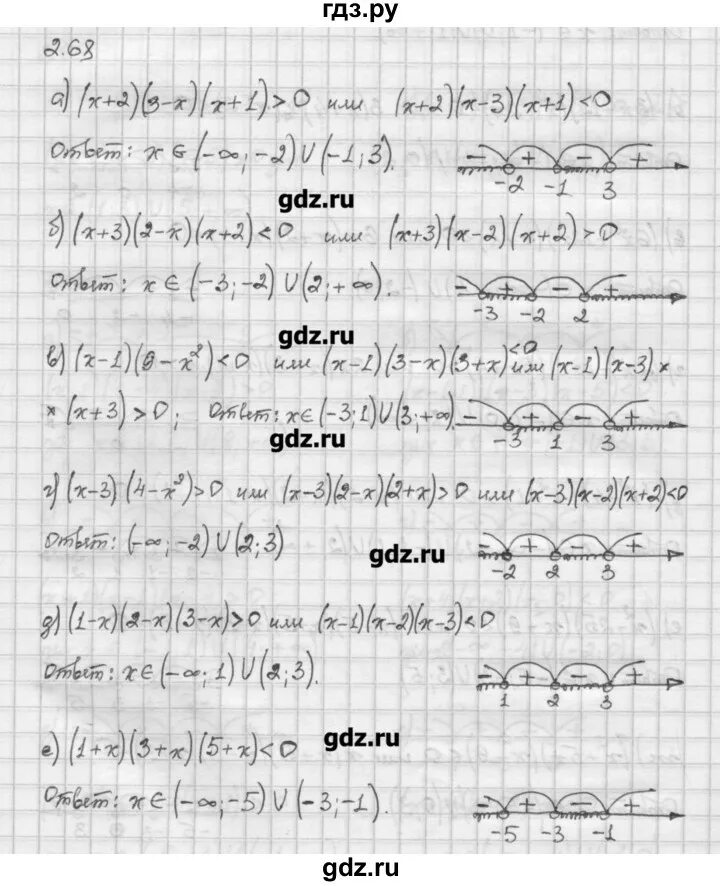 гдз.ру
2.68
а) (x+2)(3-x)(x+1)>0 или (x+2)(x-3)(x+1)<0
Ответ: x ∈ (-∞; -2) ∪ (-1; 3).
- + - +
-2 -1 3
gdz.ru
б) (x+3)(2-x)(x+2)<0 или (x+3)(x-2)(x+2)>0
Ответ: x ∈ (-3; -2) ∪ (2; +∞).
- + - +
-3 -2 2
gdz.ru
в) (x-1)(9-x²)<0 или (x-1)(3-x)(3+x)<0 или (x-1)(x-3)×
×(x+3)>0; Ответ: x ∈ (-3; 1) ∪ (3; +∞).
- + - +
-3 1 3
gdz.ru
г) (x-3)(4-x²)>0 или (x-3)(2-x)(2+x)>0 или (x-3)(x-2)(x+2)<0
Ответ: (-∞; -2) ∪ (2; 3)
- + - +
-2 2 3
gdz.ru
д) (1-x)(2-x)(3-x)>0 или (x-1)(x-2)(x-3)<0
Ответ: x ∈ (-∞; 1) ∪ (2; 3).
- + - +
1 2 3
gdz.ru
е) (1+x)(3+x)(5+x)<0
Ответ: x ∈ (-∞; -5) ∪ (-3; -1).
- + - +
-5 -3 -1
gdz.ru
gdz.ru